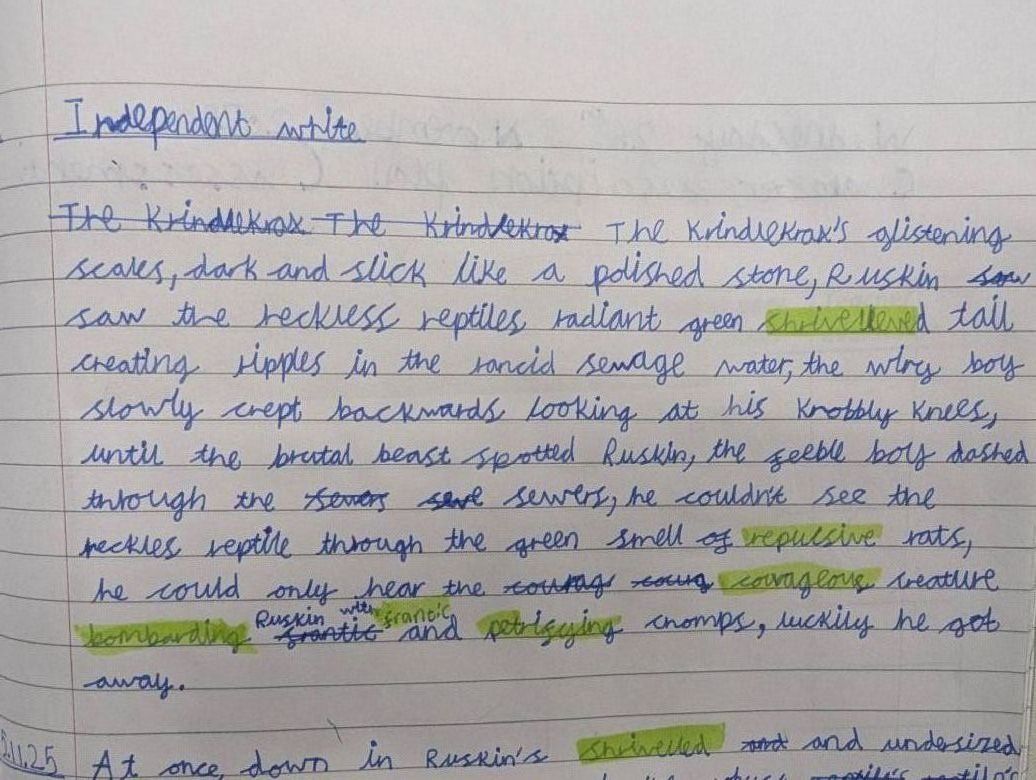 Independent write
The Krindlekrax The Krindlekrax The Krindlekrax's glistening
scales, dark and slick like a polished stone, Ruskin saw
saw the reckless reptiles radiant green shrivelleved tail
creating ripples in the rancid sewage water, the wiry boy
slowly crept backwards looking at his knobbly knees,
until the brutal beast spotted Ruskin, the feeble boy dashed
through the sewers, he couldn't see the
reckles reptile through the green smell of repulsive rats,
he could only hear the courag courg courageous creature
Ruskin with frantic
bombarding frantic and petrifying chomps, luckily he got
away.
5.11.25 At once, down in Ruskin's shrivelled and and undersized